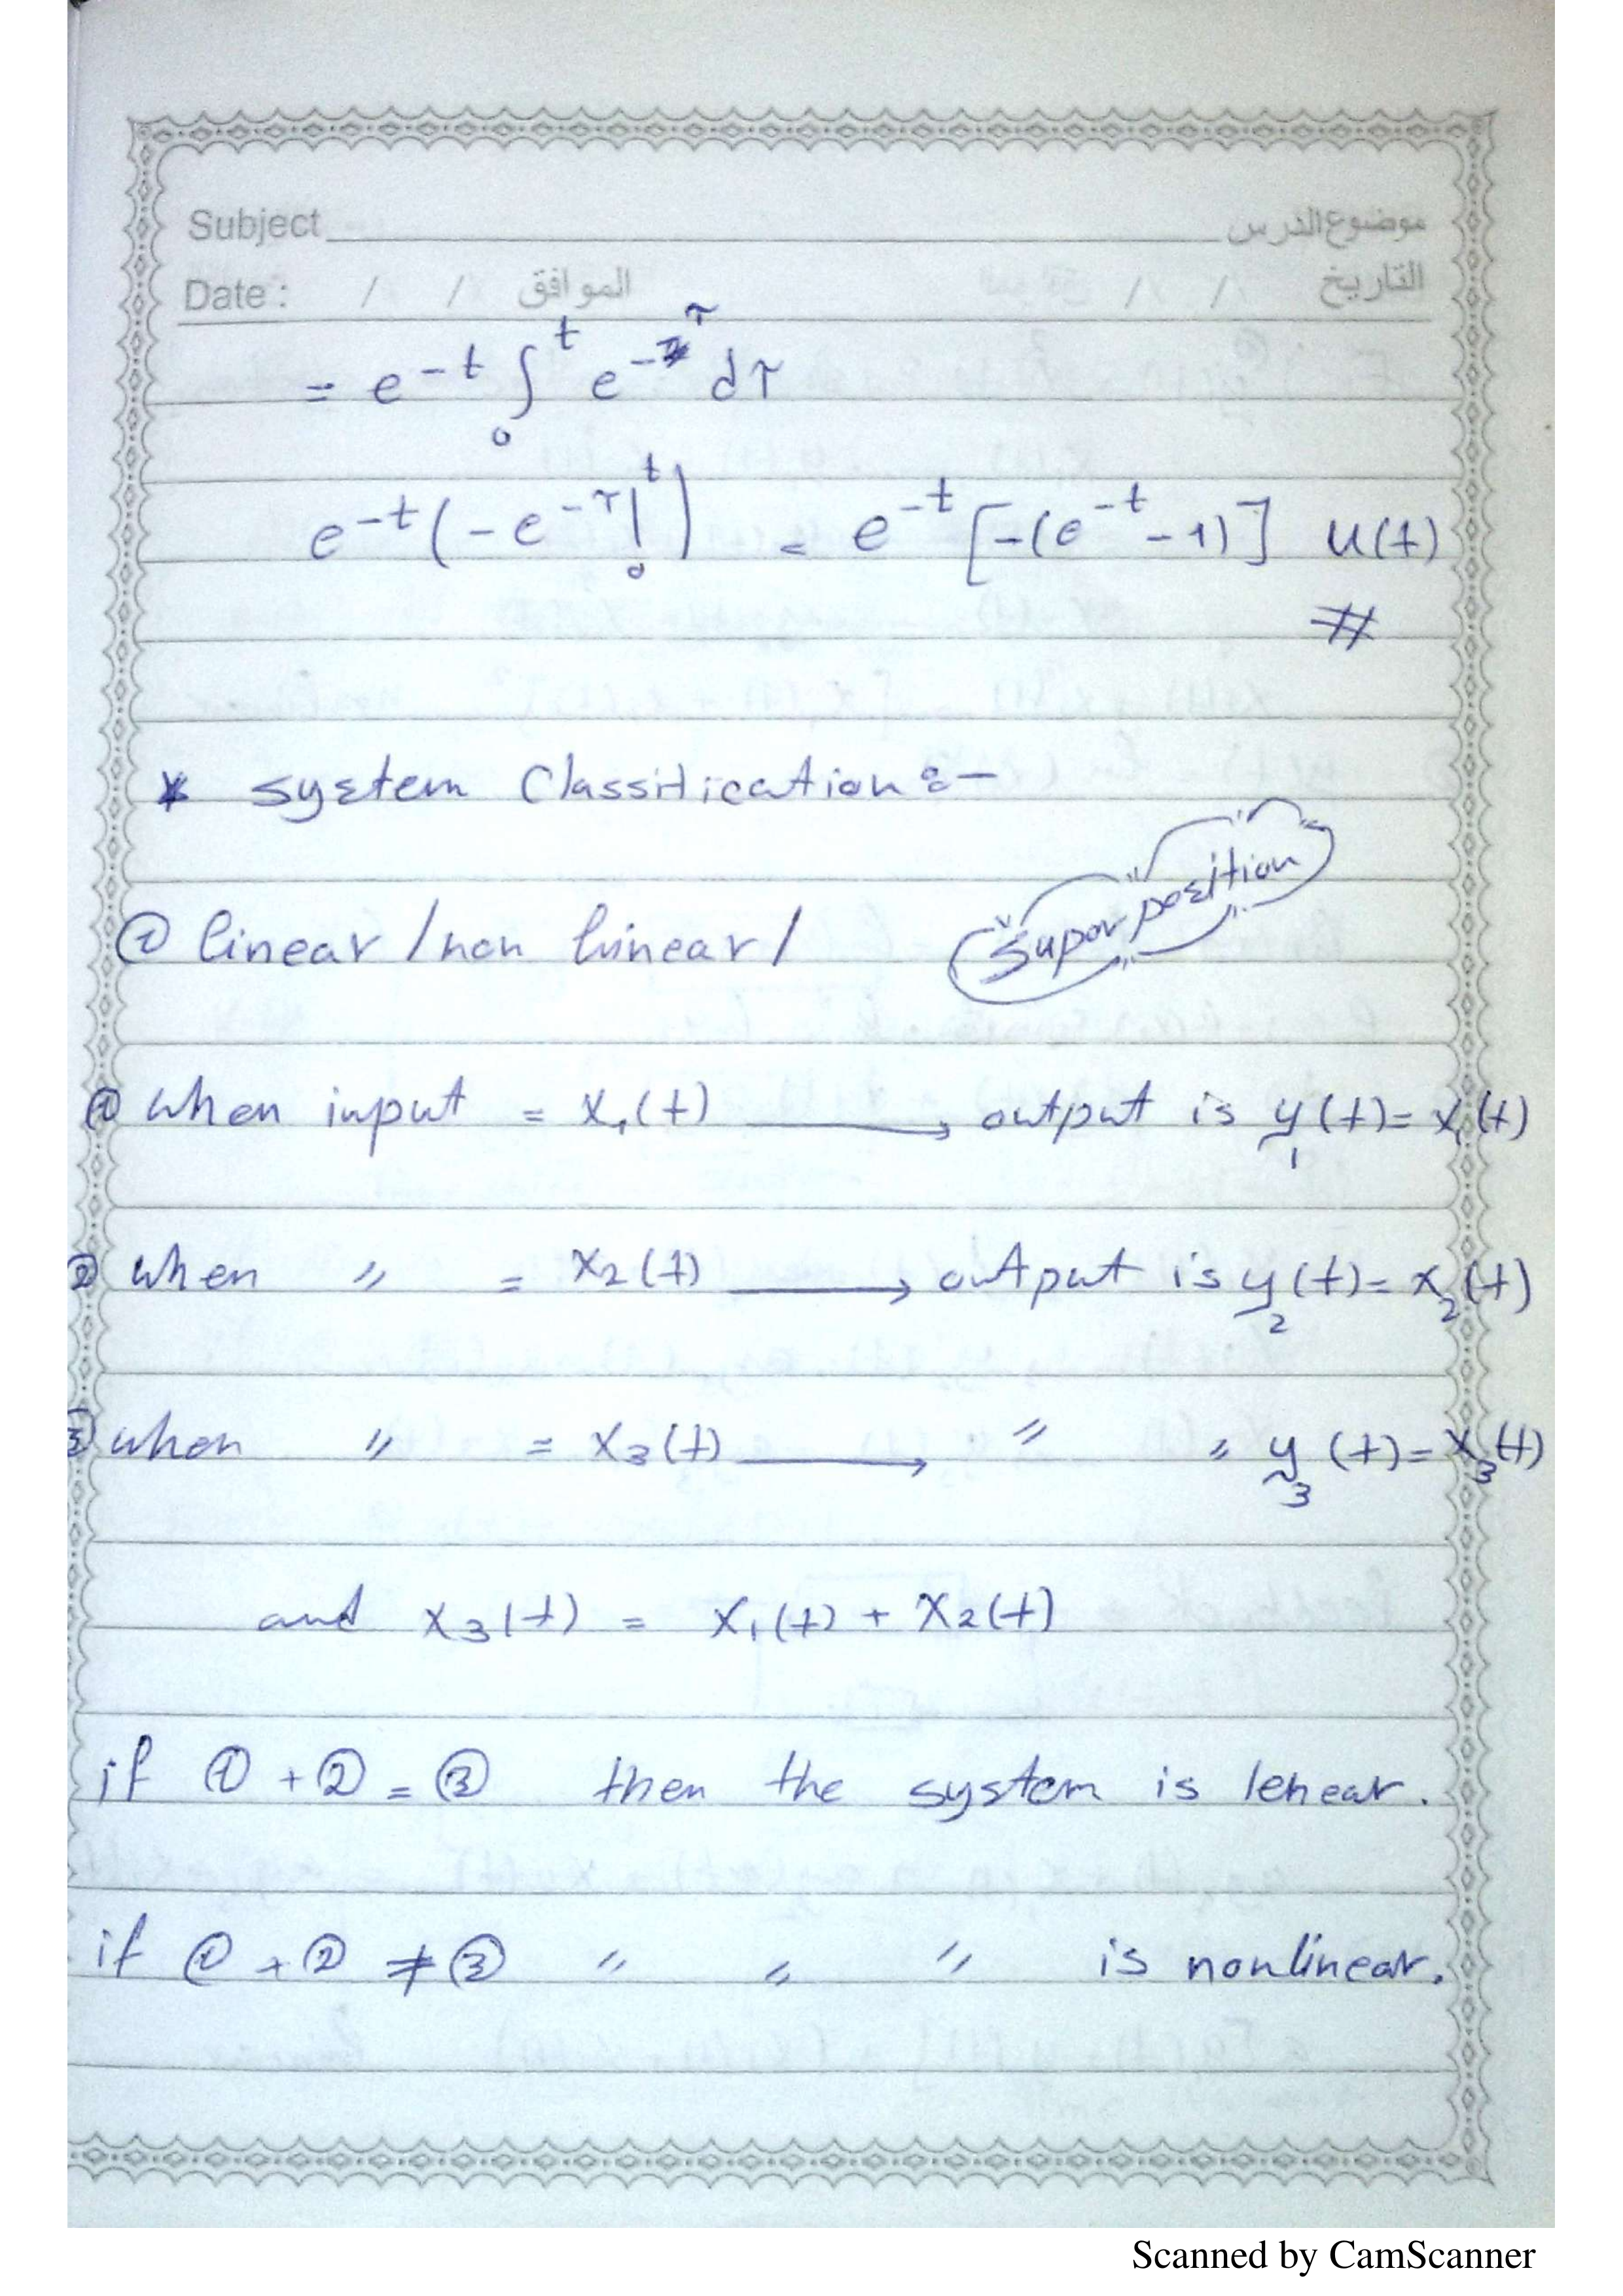 Subject موضوع الدرس
Date : / / الموافق / / التاريخ
= e^{-t} ∫_0^t e^{-τ} dτ
e^{-t} (-e^{-τ}|_0^t) = e^{-t} [-(e^{-t} - 1)] u(t)
#
* system Classification:-
① linear / non linear / superposition
① when input = x₁(t) → output is y₁(t) = x₁(t)
② when " = x₂(t) → output is y₂(t) = x₂(t)
③ when " = x₃(t) → " " y₃(t) = x₃(t)
and x₃(t) = x₁(t) + x₂(t)
if ① + ② = ③ then the system is lenear.
if ① + ② ≠ ③ " " " is nonlinear.
Scanned by CamScanner